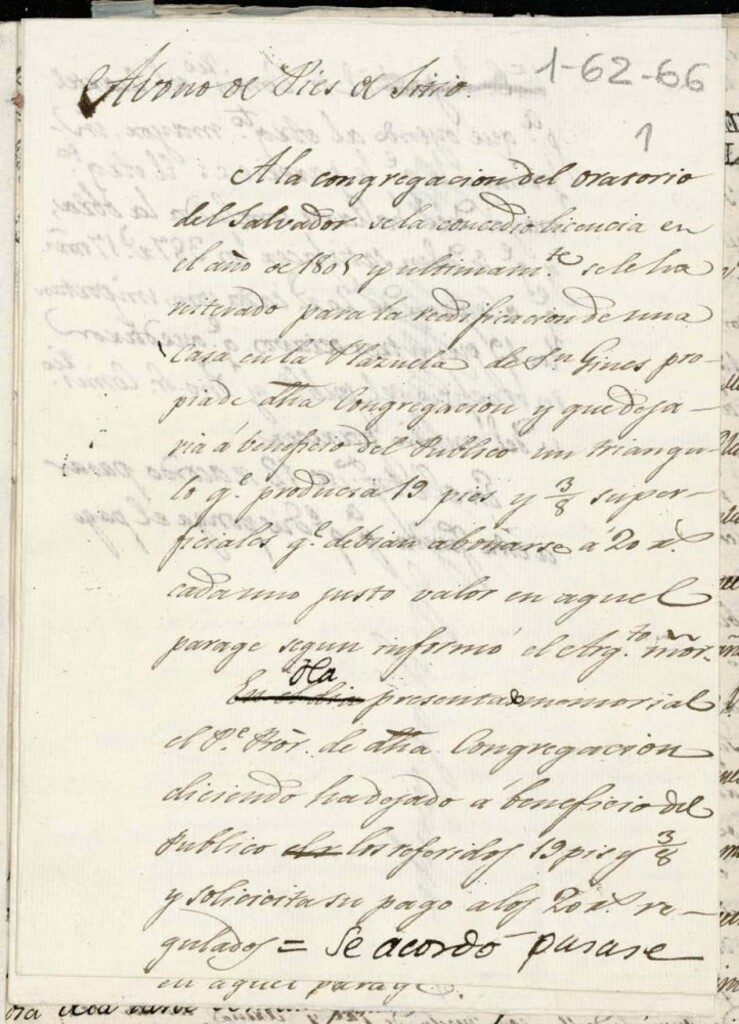 Abono de Pies de Sitio.
1-62-66
1
A la congregacion del oratorio
del Salvador se la concedio licencia en
el año de 1805 y ultimam.te se le ha
reiterado para la redificacion de una
Casa en la Plazuela de Sn Gines pro-
pia de dha Congregacion y que deja-
ria á beneficio del Publico un triangu-
lo q.e producirá 19 pies y 3/8 super-
ficiales q.e debian abonarse a 20 r.s
cada uno justo valor en aquel
parage segun informó el Arq.to mõr.
Ha
En el dia presentado memorial
el P.e Rõr. de dha Congregacion
diciendo ha dejado á beneficio del
Publico los referidos 19 pies y 3/8
y solicita su pago a los 20 r.s re-
gulados = Se acordó pasase
en aquel parage.